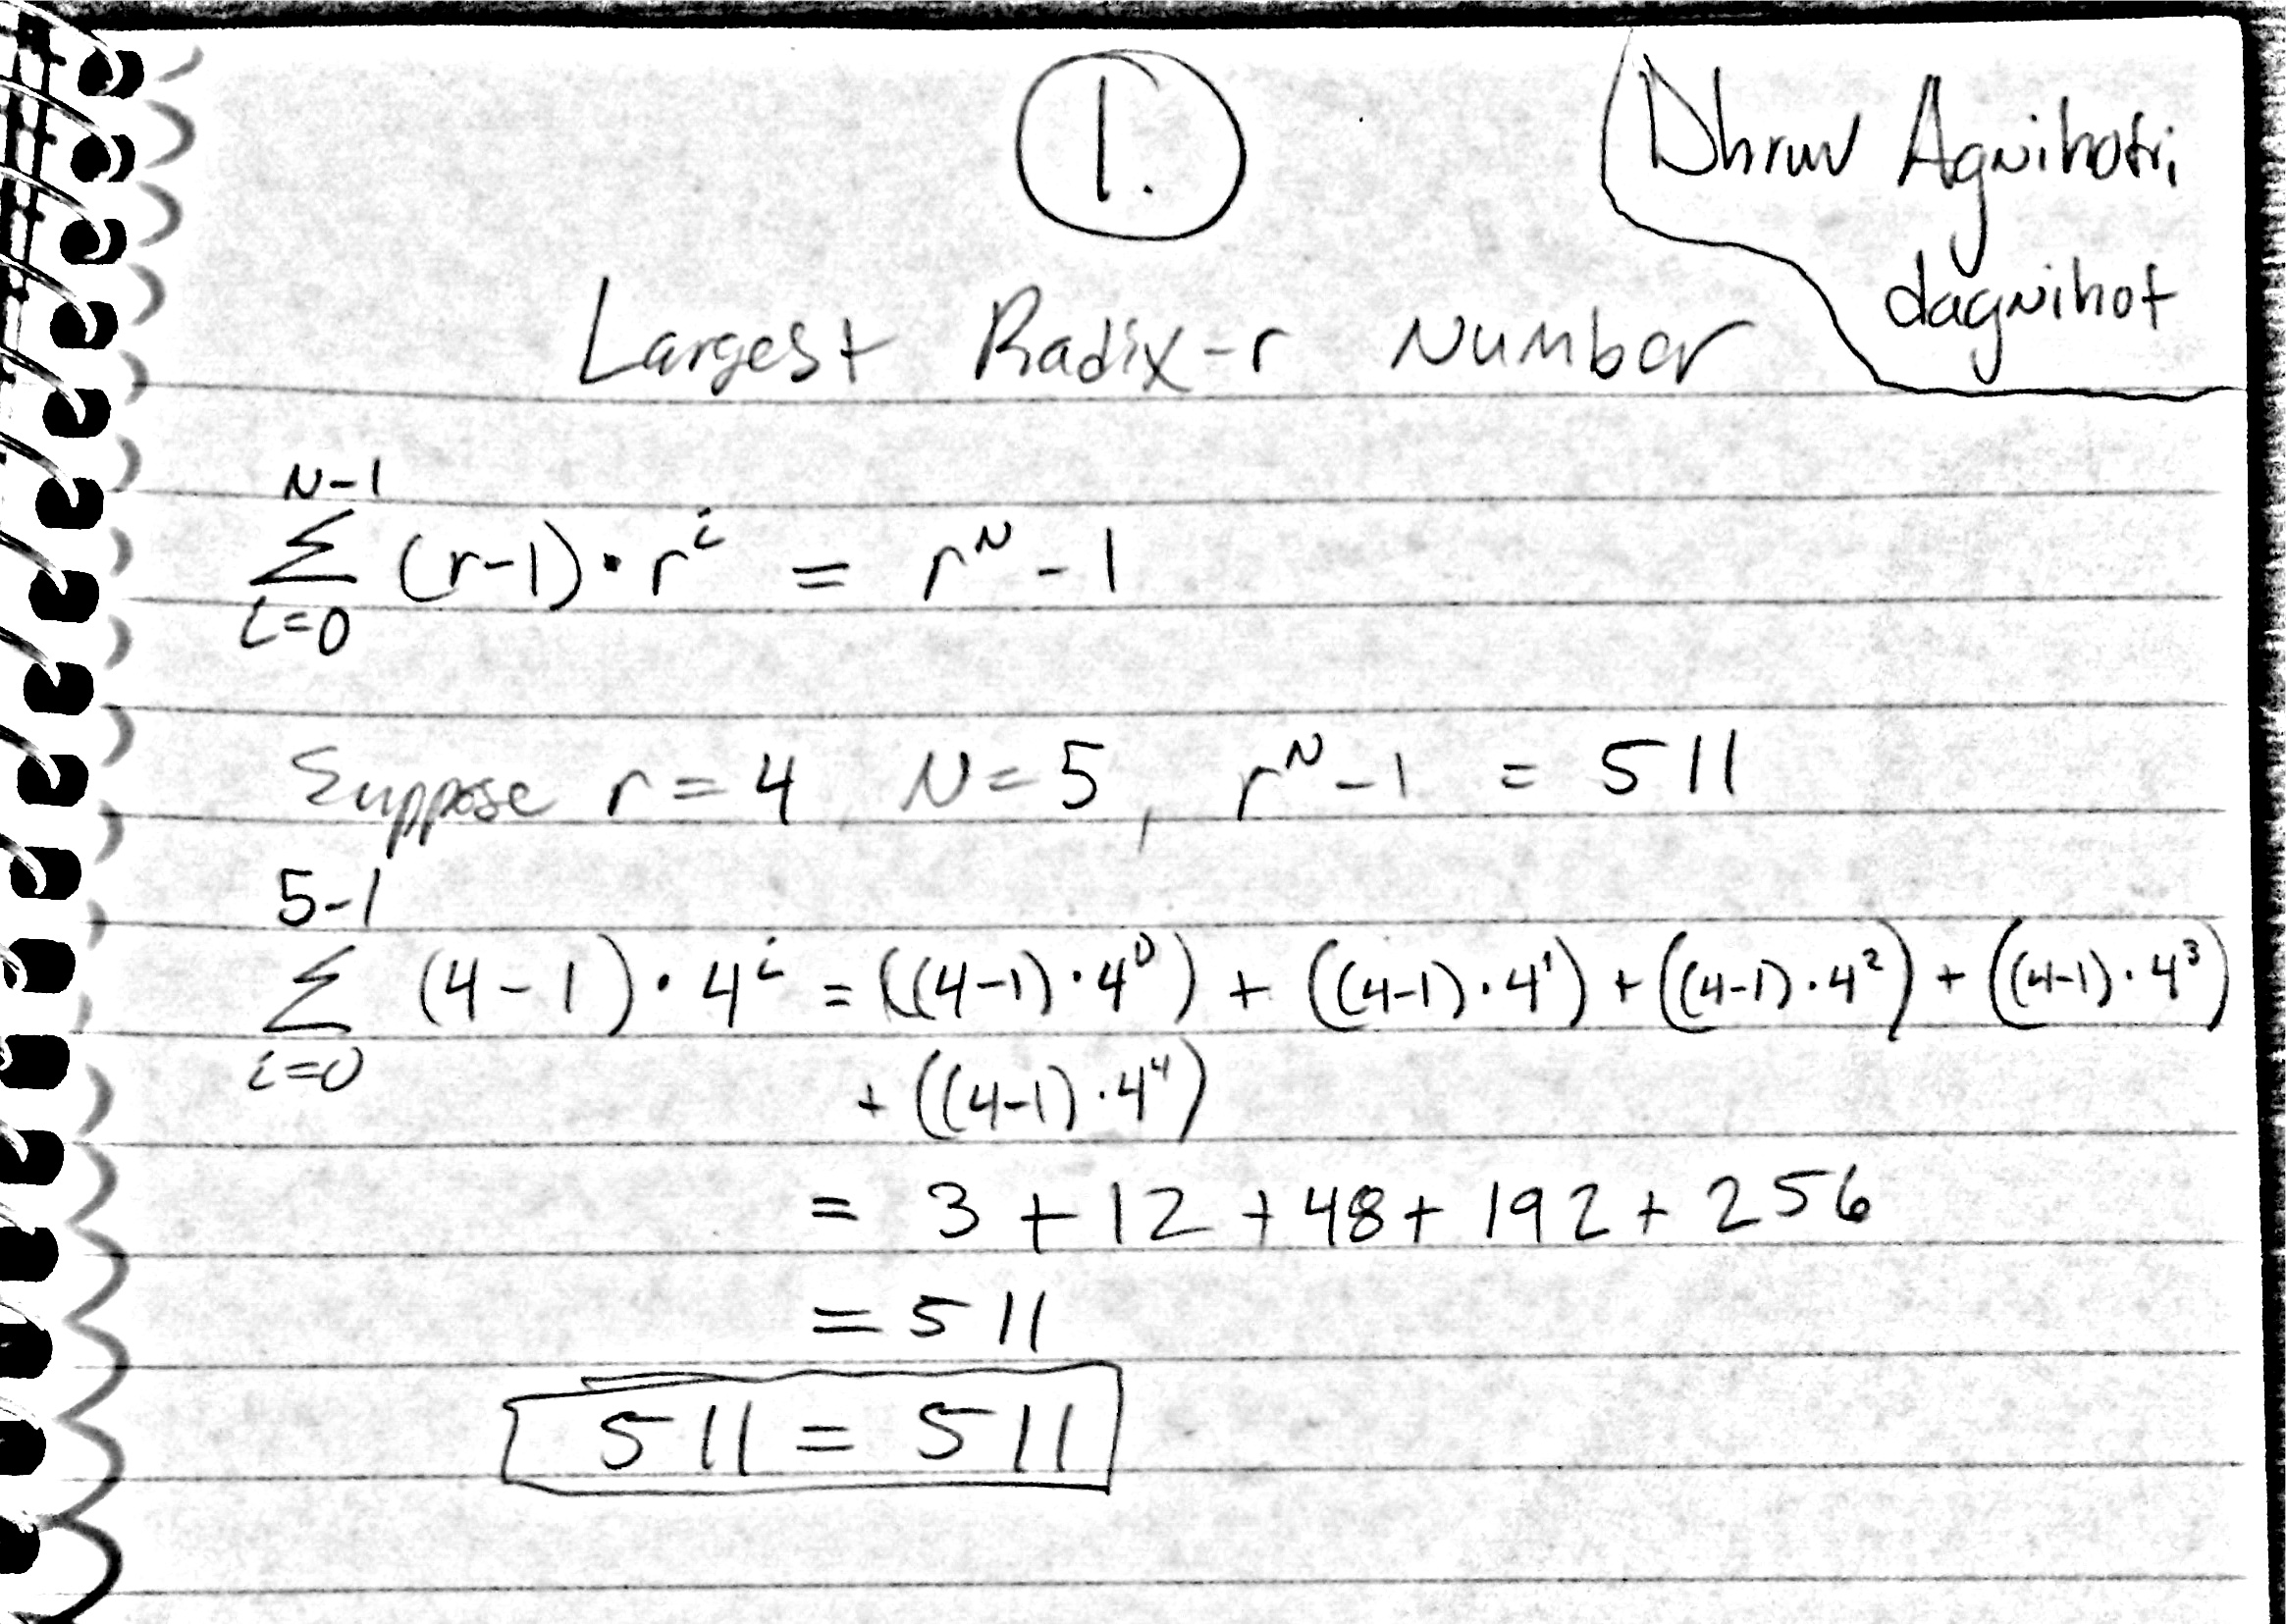 1.
Dhruv Agnihotri
dagnihot
Largest Radix-r Number
N-1
Σ (r-1)·r^i = r^N - 1
i=0
Suppose r = 4, N = 5, r^N - 1 = 511
5-1
Σ (4-1)·4^i = ((4-1)·4^0) + ((4-1)·4^1) + ((4-1)·4^2) + ((4-1)·4^3)
i=0
+ ((4-1)·4^4)
= 3 + 12 + 48 + 192 + 256
= 511
511 = 511